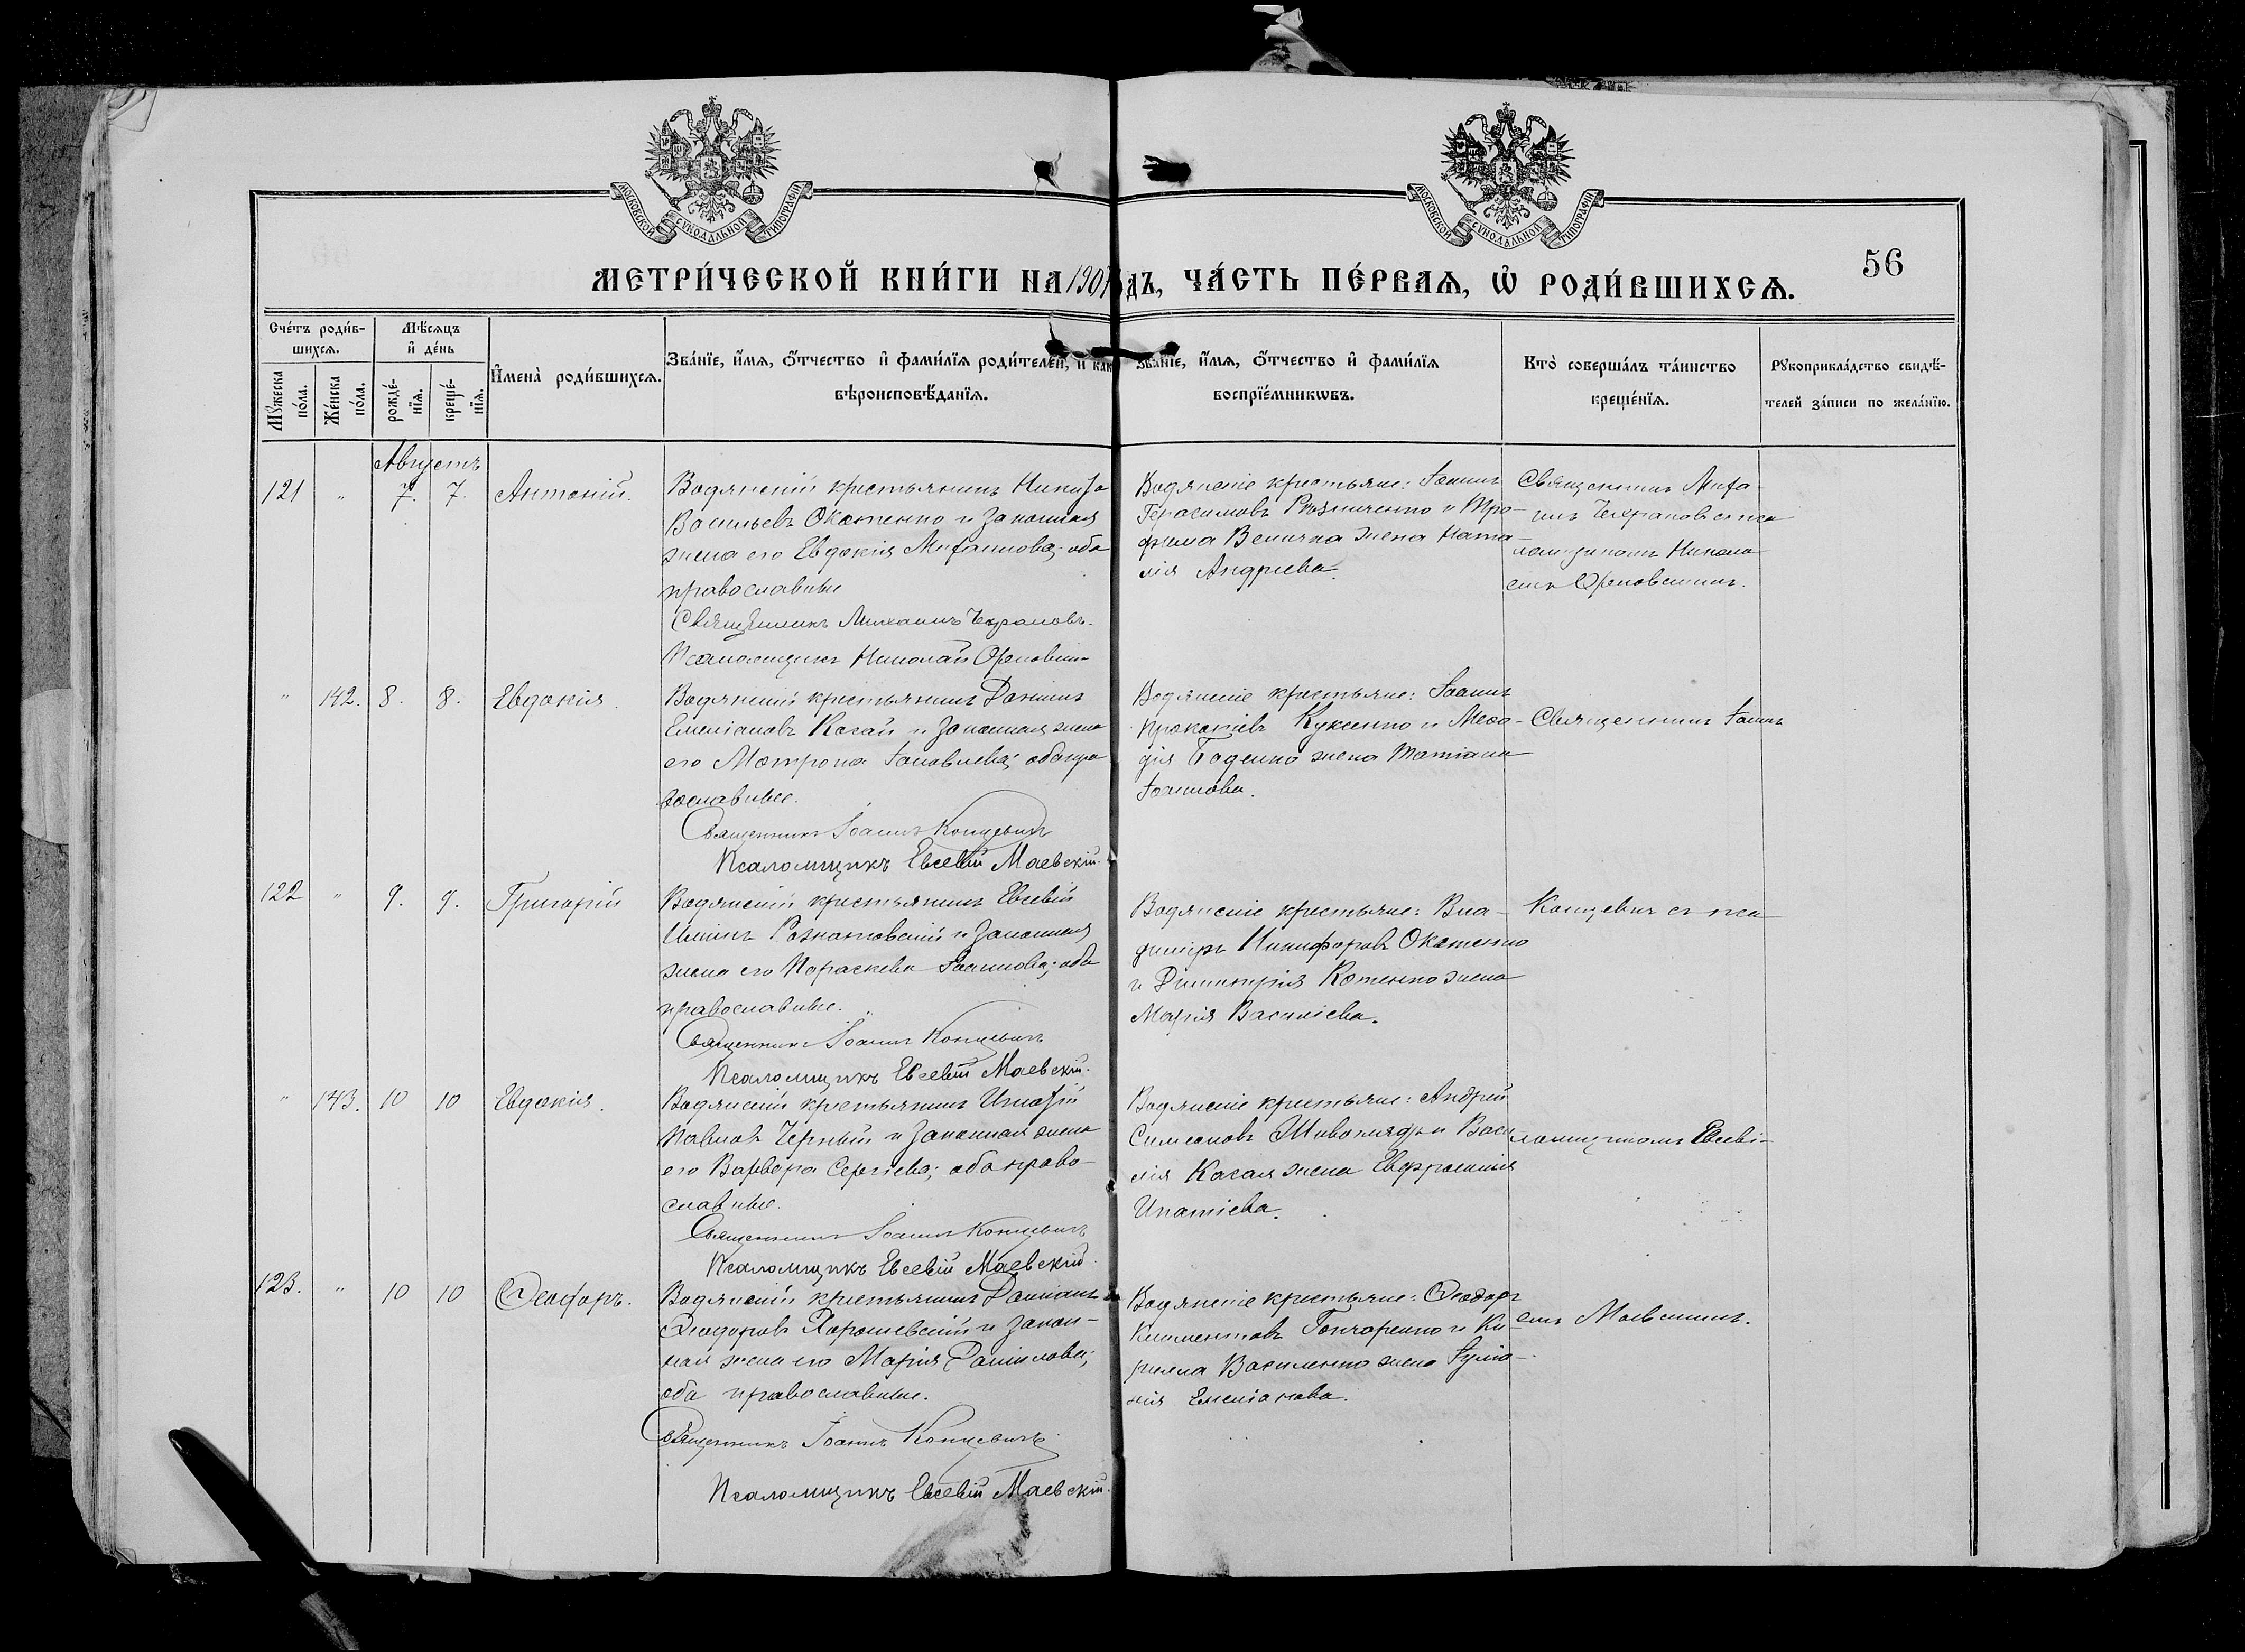 МОСКОВСКОЙ СѴНОДАЛЬНОЙ ТИПОГРАФІИ
МОСКОВСКОЙ СѴНОДАЛЬНОЙ ТИПОГРАФІИ
56
МЕТРИ́ЧЕСКОЙ КНИ́ГИ НА 1907 ДЪ, ЧА́СТЬ ПЕ́РВАѦ, Ѡ҆ РОДИ́ВШИХСѦ.
Сче́тъ роди́в-
шихсѧ.
Мꙋ́жеска по́ла.
Же́нска по́ла.
Мѣ́сѧцъ
и҆ де́нь
рожде́-
нїѧ.
креще́-
нїѧ.
И҆мена̀ роди́вшихсѧ.
Зва́нїе, и҆́мѧ, ѻ҆́тчество и҆ фами́лїѧ роди́телей, и҆ как
вѣроисповѣ́данїѧ.
Зва́нїе, и҆́мѧ, ѻ҆́тчество и҆ фами́лїѧ
воспрїе́мникѡвъ.
Кто̀ соверша́лъ та́инство
креще́нїѧ.
Рꙋкоприкла́дство свидѣ́-
телей за́писи по жела́нїю.
Августъ
121 " 7. 7. Антоній.
Водянскій крестьянинъ Никита
Васильевъ Окатенко и законная
жена его Евдокія Михаилова; оба
православные
Священникъ Михаилъ
Псаломщикъ Николай
Водянскіе крестьяне: Іоаннъ
Герасимовъ Резниченко и Тро-
фима Величка жена Ната-
лія Андреева.
Священникъ Миха-
илъ съ пса
ломщикомъ Никола
емъ
" 142. 8. 8. Евдокія.
Водянскій крестьянинъ Даніилъ
Емеліановъ Касай и законная жена
его Матрона Іаковлева; оба пра
вославные.
Священникъ Іоаннъ Концевичъ
Псаломщикъ Евсевій Маевскій.
Водянскіе крестьяне: Іоаннъ
Прокопіевъ Куксенко и Меѳо-
дія жена Татіана
Іоаннова.
Священникъ Іоаннъ
122 " 9. 9. Григорій
Водянскій крестьянинъ Евсевій
Рознатовскій и законная
жена его Параскева Іоаннова; оба
православные.
Священникъ Іоаннъ Концевичъ
Псаломщикъ Евсевій Маевскій.
Водянскіе крестьяне: Вла-
димиръ Никифоровъ Окатенко
и Димитрія Котенко жена
Марія Василіева.
Концевичъ съ пса
" 143. 10 10 Евдокія.
Водянскій крестьянинъ Игнатій
Павловъ Черный и законная жена
его Варвара Сергіева; оба право-
славные.
Священникъ Іоаннъ Концевичъ
Псаломщикъ Евсевій Маевскій.
Водянскіе крестьяне: Андрей
Симеоновъ и Васи
лія Касая жена Евфросинія
Ипатіева.
ломщикомъ Евсеві-
123. " 10 10 Ѳеодоръ.
Водянскій крестьянинъ Даміанъ
Ѳеодоровъ Харошевскій и закон-
ная жена его Марія Даніилова;
оба православные.
Священникъ Іоаннъ Концевичъ
Псаломщикъ Евсевій Маевскій.
Водянскіе крестьяне: Ѳеодоръ
Климентовъ Гончаренко и Ки-
рилла Василенко жена Іуліа-
нія Емеліанова.
емъ Маевскимъ.